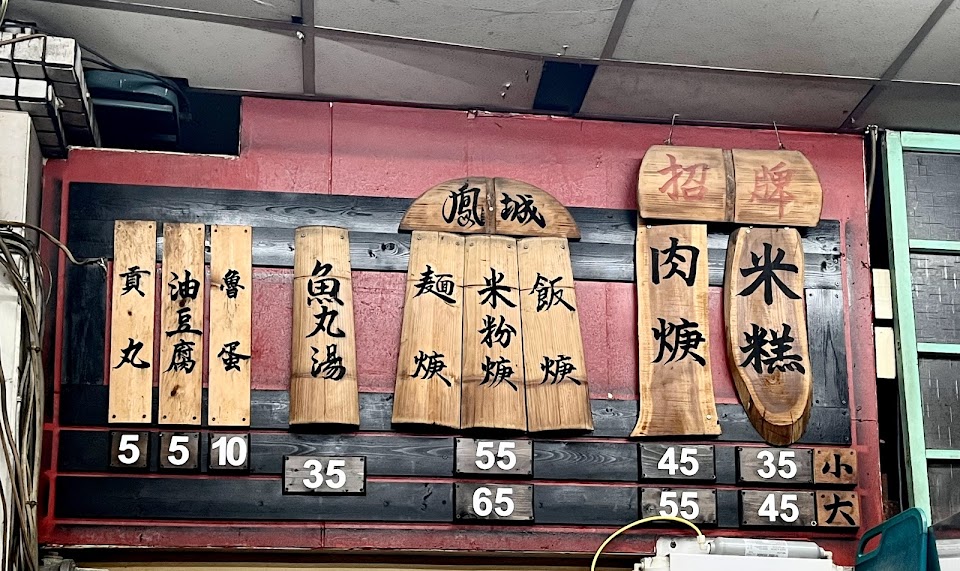 招牌
米糕
35
45
小
大
肉焿
45
55
鳳城
飯焿
米粉焿
麵焿
55
65
魚丸湯
35
魯蛋
10
油豆腐
5
貢丸
5